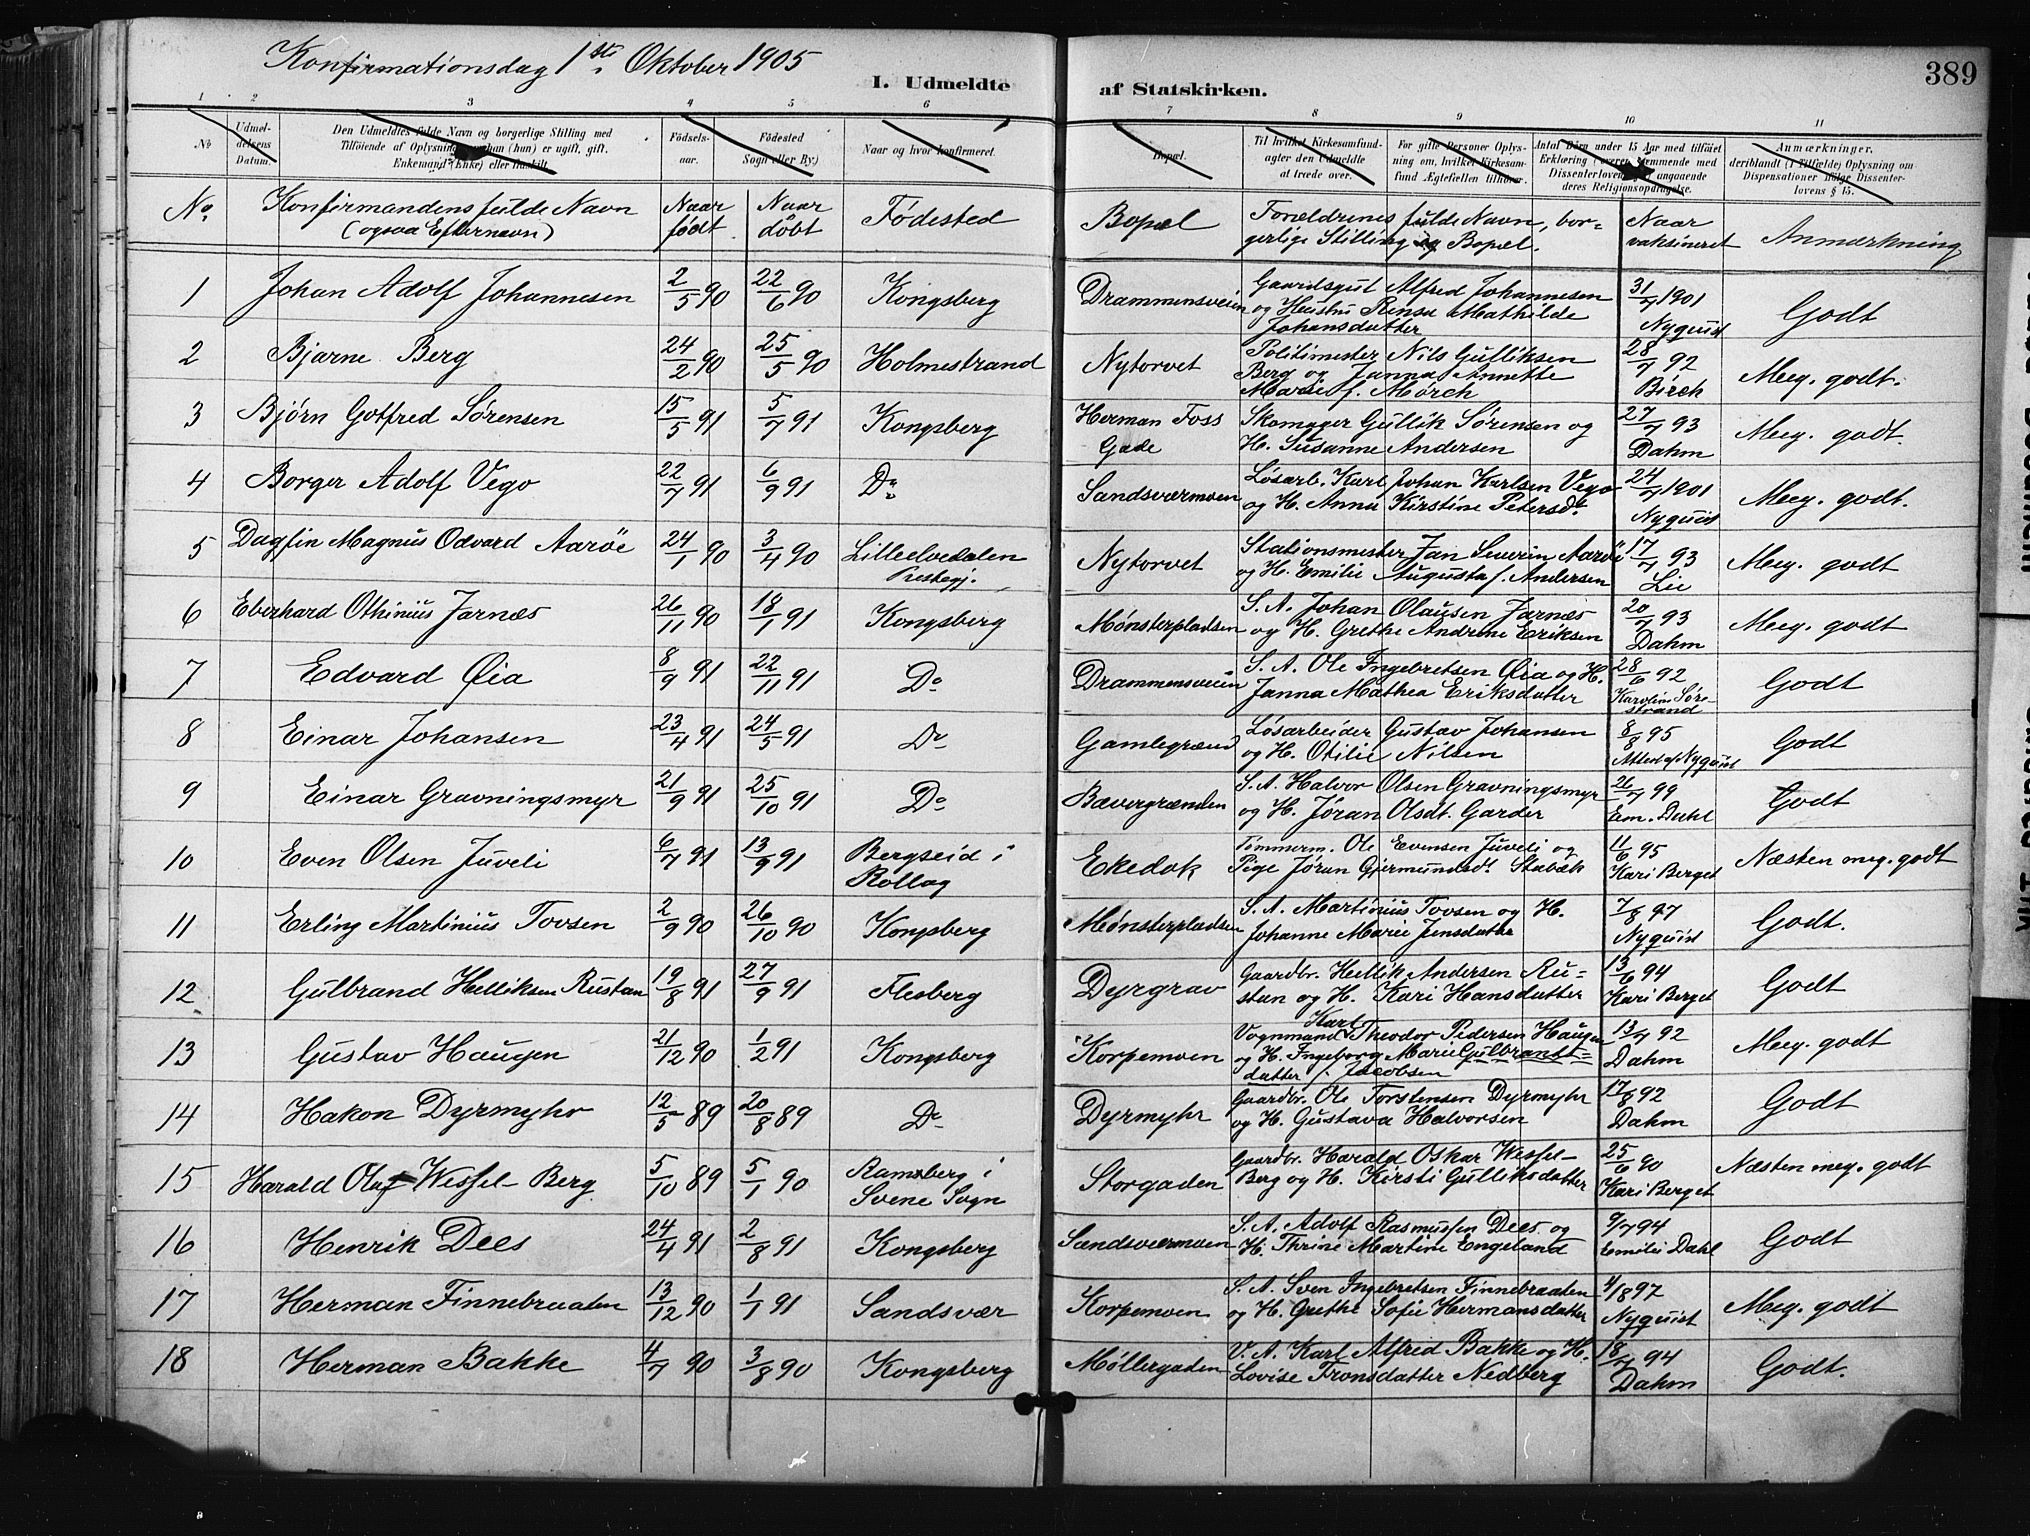 Konfirmationsdag 1ste Oktober 1905
389
I. Udmeldte af Statskirken.
1 2 3 4 5 6 7 8 9 10 11
№
Udmel-
delsens
Datum.
Den Udmeldtes fulde Navn og borgerlige Stilling med
Tilføiende af Oplysning om han (hun) er ugift, gift,
Enkemand (Enke) eller fraskilt.
Fødsels-
aar.
Fødested
Sogn eller By.
Naar og hvor konfirmeret.
Bopæl.
Til hvilket Kirkesamfund
agter den Udmeldte
at træde over.
For gifte Personer Oplys-
ning om, hvilket Kirkesam-
fund Ægtefællen tilhører.
Antal Børn under 15 Aar med tilføiet
Erklæring (overensstemmende med
Dissenterloven) angaaende
deres Religionsopdragelse.
Anmærkninger,
deriblandt (i Tilfælde) Oplysning om
Dispensationer ifølge Dissenter-
lovens § 15.
No
Konfirmandens fulde Navn
(ogsaa Efternavn)
Naar
født
Naar
døbt
Fødested
Bopæl
Forældrenes fulde Navn, bor-
gerlige Stilling og Bopæl.
Naar
vaksineret
Anmærkning
1 Johan Adolf Johannesen 2/5 90 22/6 90 Kongsberg Drammensveien
Gaardsgut Alfred Johannesen
og Hustru Rensa Mathilde
Johansdatter
31/7 1901
Nyquist
Godt
2 Bjarne Berg 24/2 90 25/5 90 Holmestrand Nytorvet
Politimester Nils Gulliksen
Berg og Janna Annette
Marie f. Mørch
28/7 92
Birch
Meg. godt.
3 Bjørn Gotfred Sørensen 15/5 91 5/7 91 Kongsberg
Herman Foss
Gade
Skomager Gullik Sørensen og
H. Susanne Andersen
27/7 93
Dahm
Meg. godt.
4 Borger Adolf Vego 22/7 91 6/9 91 Do Sandsværmoen
Løsarb. Karl Johan Karlsen Vego
og H. Anna Kirstine Petersdt.
24/7 1901
Nyquist
Meg. godt.
5 Dagfin Magnus Odvard Aarøe 24/1 90 3/4 90
Lilleelvedalen
Prestegj.
Nytorvet
Stationsmester Jan Severin Aarøe
og H. Emilie Augusta f. Andersen
17/7 93
Lie
Meg. godt
6 Eberhard Othinius Jarnæs 26/11 90 18/1 91 Kongsberg Mønsterpladsen
S. A. Johan Olausen Jarnæs
og H. Grethe Andrine Eriksen
20/7 93
Dahm
Meg. godt
7 Edvard Øia 8/9 91 22/11 91 Do Drammensveien
S. A. Ole Ingebretsen Øia og H.
Janna Mathea Eriksdatter
28/6 92
Karoline Søre-
strand
Godt
8 Einar Johansen 23/4 91 24/5 91 Do Gamlegrænd
Løsarbeider Gustav Johansen
og H. Otilie Nilsen
8/8 95
Attest af Nyquist
Godt
9 Einar Gravningsmyr 21/9 91 25/10 91 Do Bævergrænden
S. A. Halvor Olsen Gravningsmyr
og H. Jøran Olsdt. Garder
26/7 99
Em. Dahl
Godt
10 Even Olsen Juveli 6/7 91 13/9 91
Bergseid i
Rollag
Ekedok
Tømmerm. Ole Evensen Juveli og
Pige Jøran Gjermundsdt. Stabæk
11/6 95
Kari Berget
Næsten meg. godt
11 Erling Martinius Tovsen 2/9 90 26/10 90 Kongsberg Mønsterpladsen
S. A. Martinius Tovsen og H.
Johanne Marie Jensdatter
7/8 97
Nyquist
Godt.
12 Gulbrand Helliksen Rustan 19/8 91 27/9 91 Flesberg Dyrgrav
Gaardbr. Hellik Andersen Ru-
stan og H. Kari Hansdatter
13/6 94
Kari Berget
Godt
13 Gustav Haugen 21/12 90 1/2 91 Kongsberg Korpemoen
Karl
Vognmand Theodor Pedersen Haugen
og H. Ingeborg Marie Gulbrandt-
datter f. Jacobsen
13/7 92
Dahm
Meg. godt
14 Hakon Dyrmyhr 12/5 89 20/8 89 Do Dyrmyhr
Gaardbr. Ole Torstensen Dyrmyhr
og H. Gustava Halvorsen
17/8 92
Dahm
Godt
15 Harald Olaf Wessel-Berg 5/10 89 5/1 90
Ramsberg i
Svene Sogn
Storgaden
Gaardbr. Harald Oskar Wessel-
Berg og H. Kirsti Gulliksdatter
25/6 90
Kari Berget
Næsten meg. godt
16 Henrik Dees 24/4 91 2/8 91 Kongsberg Sandsværmoen
S. A. Adolf Rasmussen Dees og
H. Thrine Martine Engeland
9/7 94
Emilie Dahl
Godt
17 Herman Finnebraaten 13/12 90 1/1 91 Sandsvær Korpemoen
S. A. Sven Ingebretsen Finnebraaten
og H. Grethe Sofie Hermansdatter
4/8 97
Nyquist
Meg. godt
18 Herman Bakke 4/7 90 3/8 90 Kongsberg Møllergaden
V. A. Karl Alfred Bakke og H.
Lovise Tronsdatter Nedberg
18/7 94
Dahm
Godt.